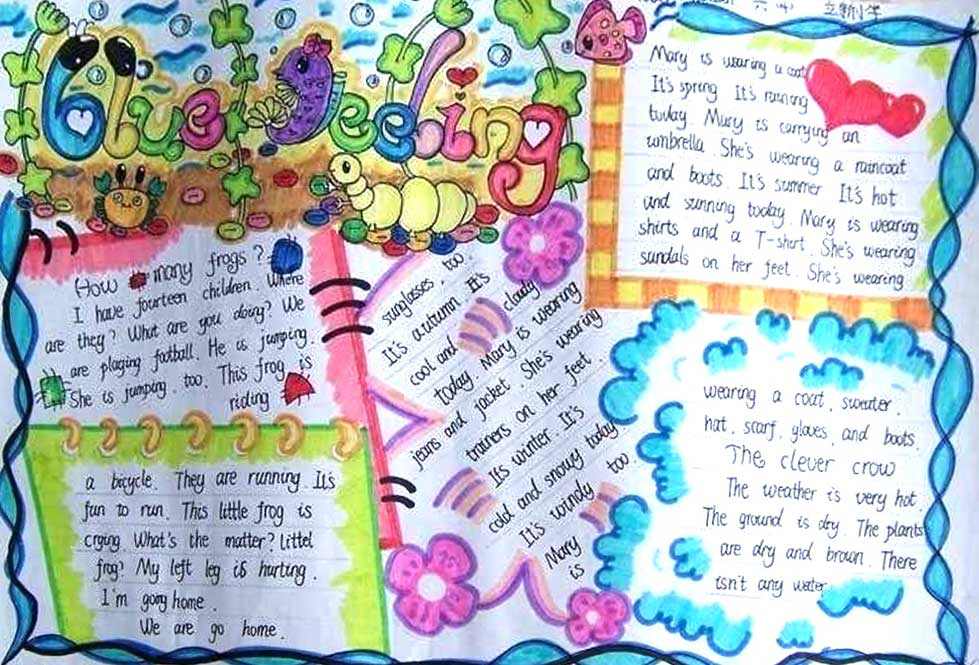 Blue feeling
六年
立新小学
How many frogs?
I have fourteen children. Where
are they? What are you doing? We
are playing football. He is jumping.
She is jumping, too. This frog is
riding
a bicycle. They are running. It's
fun to run. This little frog is
crying. What's the matter? Littel
frog? My left leg is hurting.
I'm going home.
We are go home.
Mary is wearing a coat
It's spring It's raining
today. Mary is carrying an
umbrella. She's wearing a raincoat
and boots. It's summer It's hot
and sunning today. Mary is wearing
shirts and a T-shirt. She's wearing
sandals on her feet. She's wearing
sunglasses, too.
It's autumn. It's
cool and cloudy
today. Mary is wearing
jeans and jacket. She's wearing
trainers on her feet.
Its winter. It's
cold and snowy today.
It's windy too.
Mary
is
wearing a coat, sweater,
hat, scarf, gloves, and boots.
The clever crow
The weather is very hot.
The ground is dry. The plants
are dry and brown. There
isn't any water